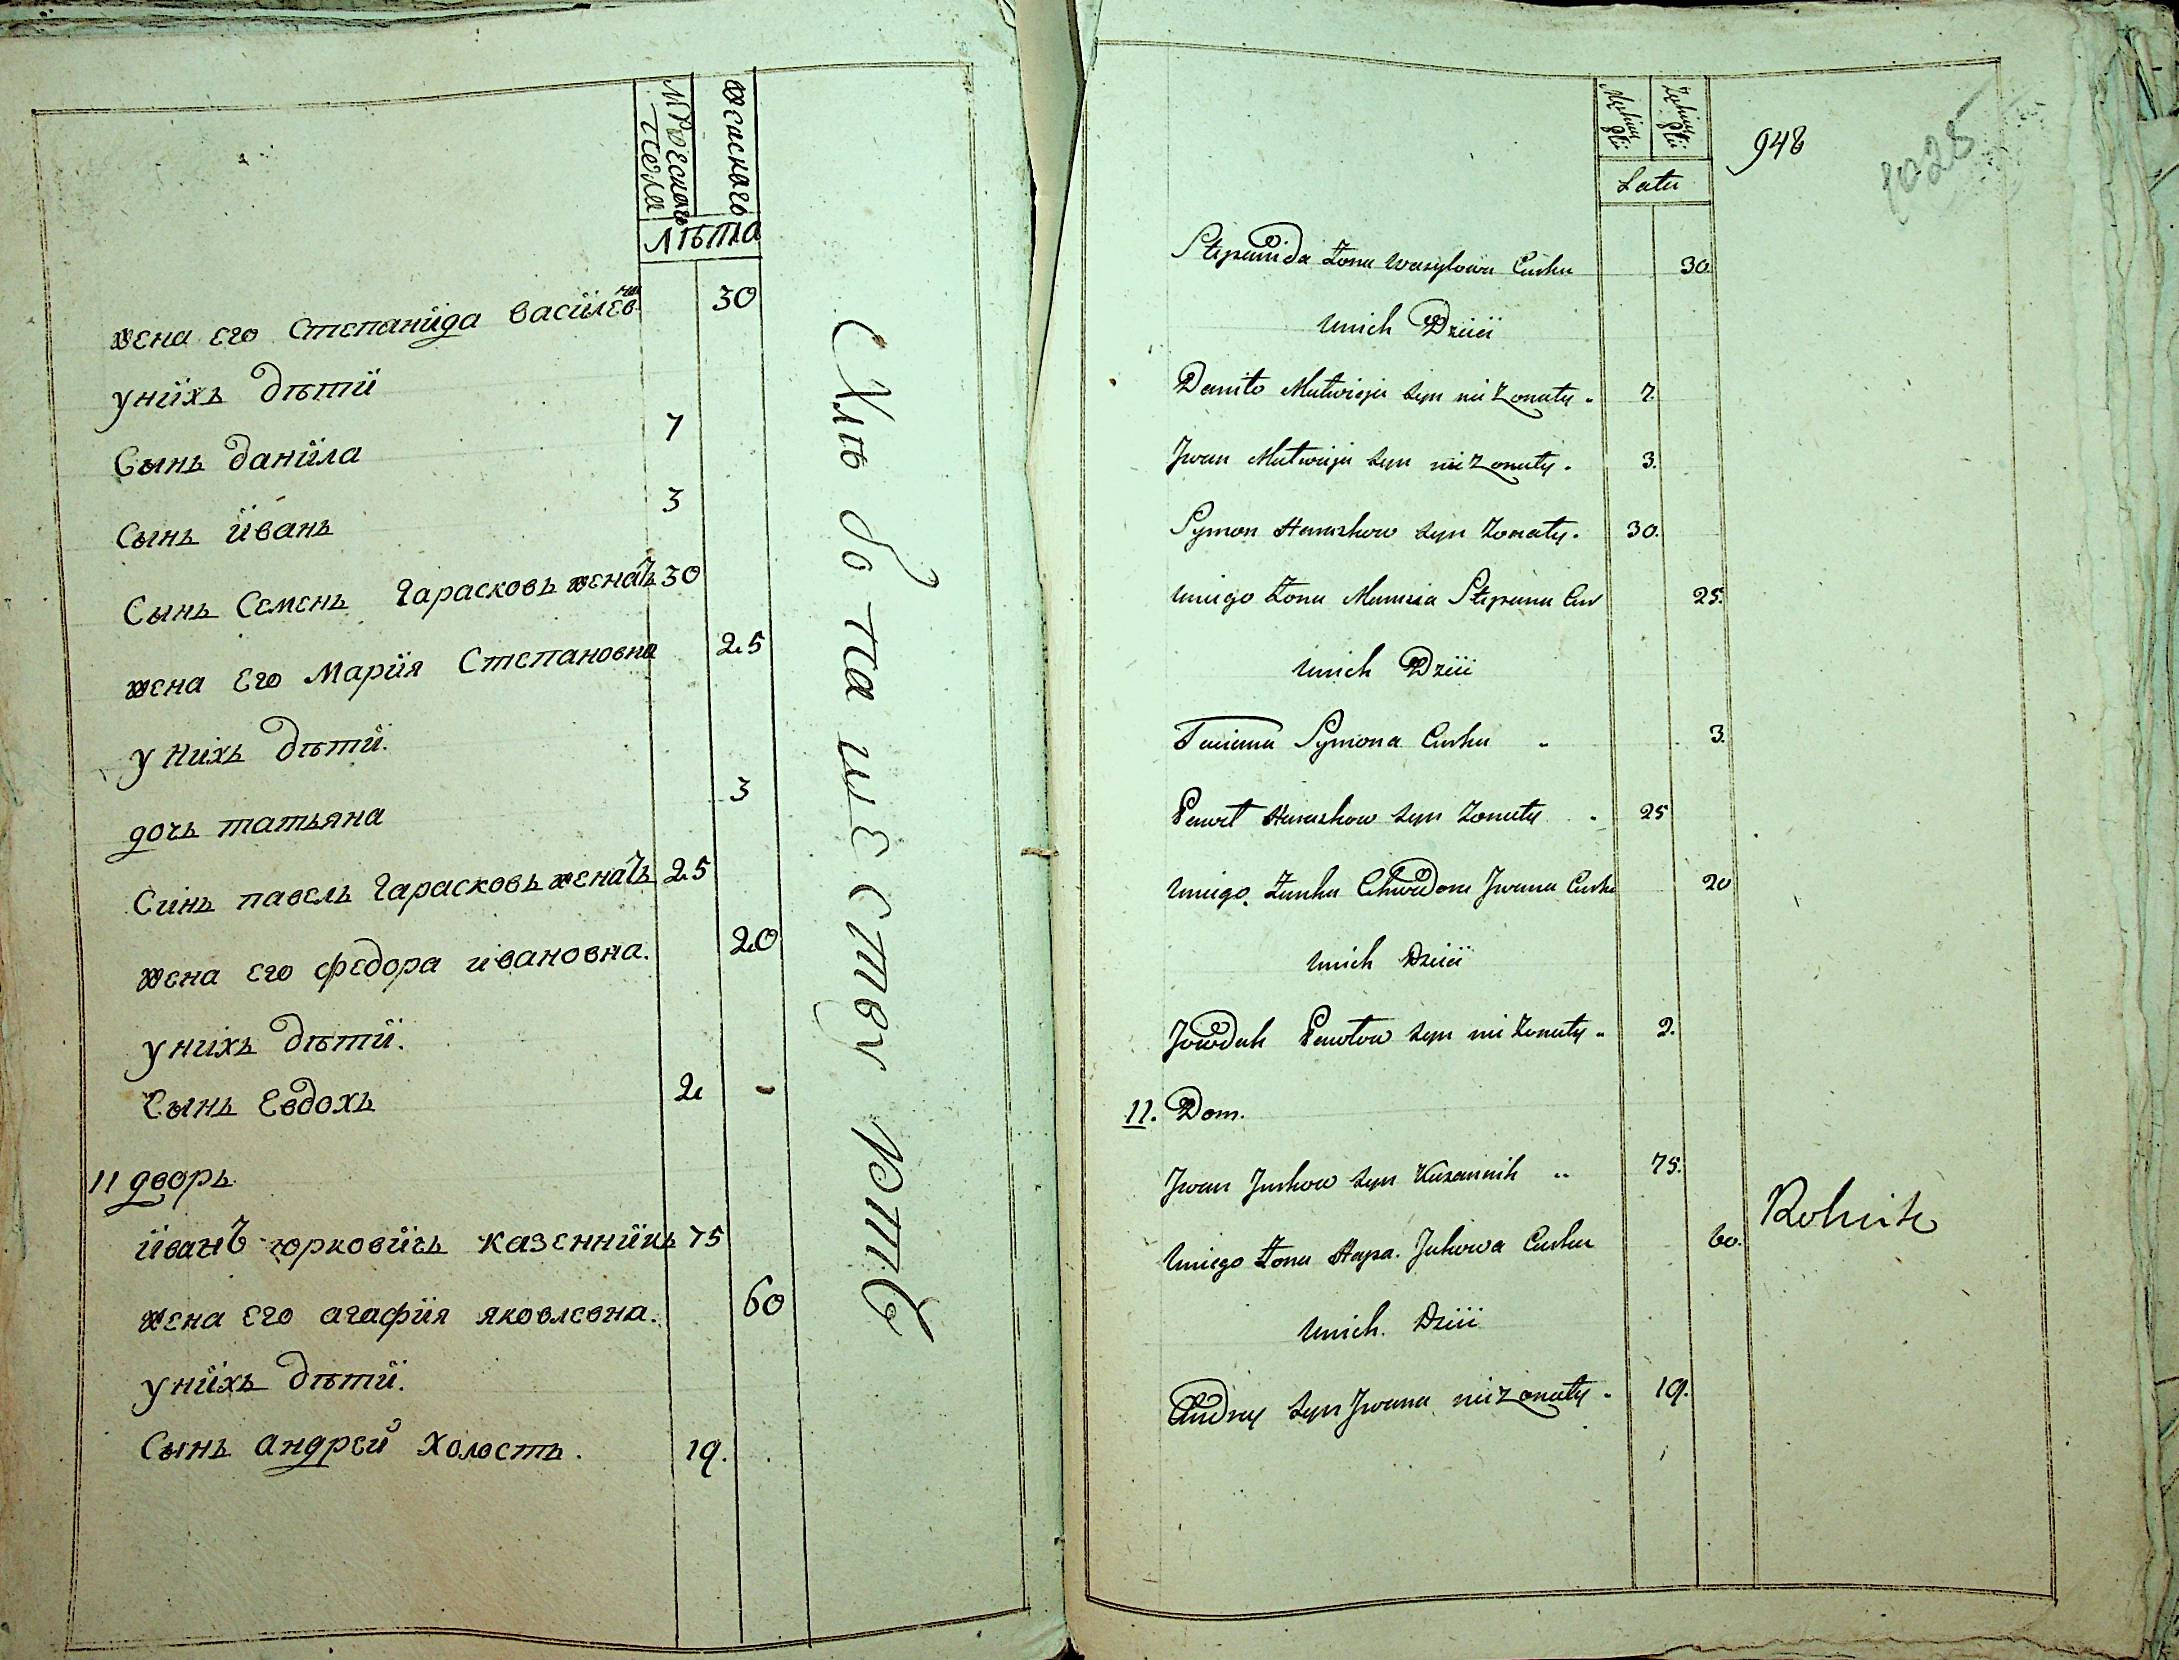 мужескаго пола
женскаго
лѣта
жена его Степанïда васïлевна 30
унïхъ дѣтï
Сынъ данïла 7
Сынъ ïванъ 3
Сынъ Семенъ Гарасковъ женатъ 30
жена его Марïя Степановна 25
у нихъ дѣтï.
дочь татьяна 3
Синъ павелъ Гарасковъ женатъ 25
жена его федора ивановна. 20
унихъ дѣтï.
Сынъ Евдохъ 2 -
11 дворъ
ïванъ юрковïчъ казеннïкъ 75
жена его агафïя яковлевна. 60
унïхъ дѣтï.
Сынъ андрей холостъ. 19.
Męskiey Płci
Żeńskiey Płci
Latu
948
1025
Stepanida Żona Wasylowa Curka 30
Unich Dzieci
Daniło Matwieja syn nie Żonaty. 7.
Jwan Matwieja syn nie Żonaty. 3.
Symon Haraskow syn Żonaty. 30.
Uniego Żona Marysia Stepana Cur 25.
Unich Dzieci
Taciana Symona Curka 3.
Paweł Haraskow syn Żonaty 25
Uniego Żonka Chwedora Jwana Curka 20
Unich Dzieci
Jowduk Pawłow syn nie Żonaty. 2.
11. Dom.
Jwan Jurkow syn Kazannik 75.
Uniego Żona Hapa. Jakowa Curka 60.
Rolnik
Unich. Dzieci
Andrey syn Jwana nie Żonaty. 19.